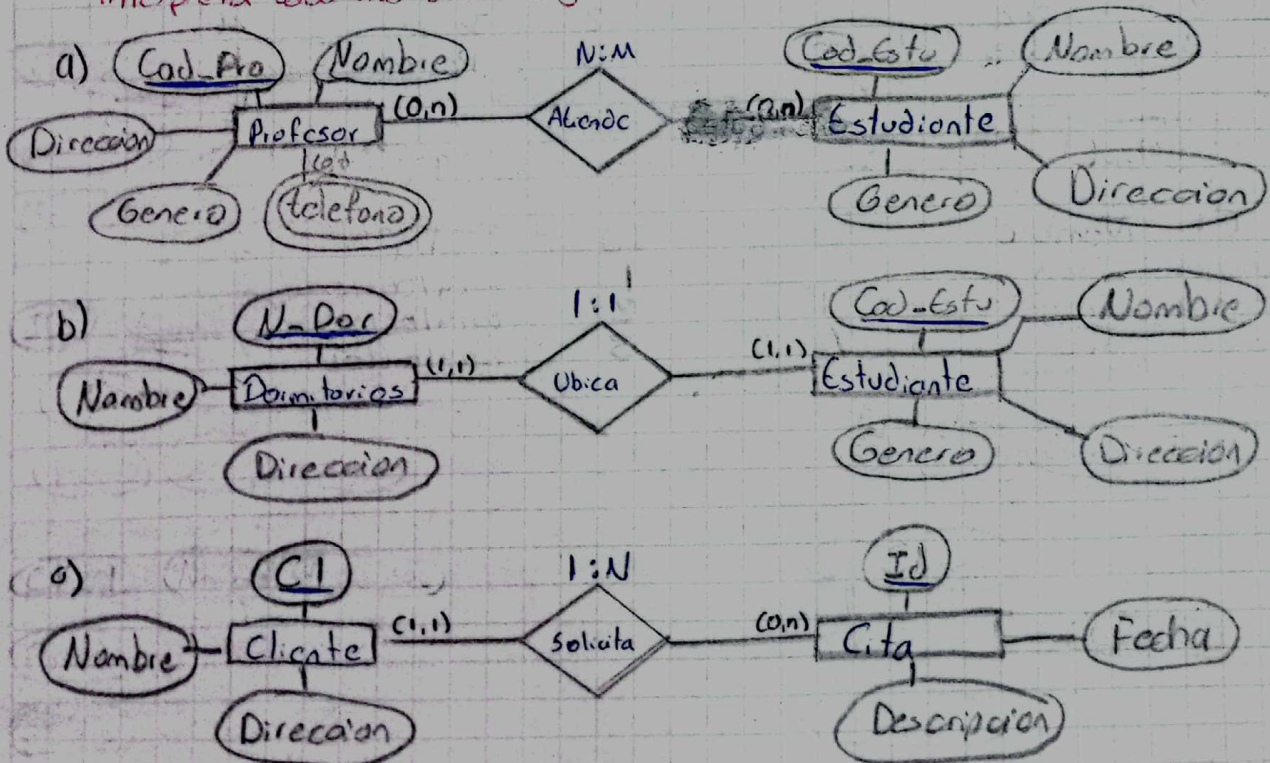 a) Cod_Pro Nombre N:M Cod_Estu Nombre
Direccion Profesor (0,n) Atiende (0,n) Estudiante
Genero telefono Genero Direccion
b) N_Dor 1:1 Cod_Estu Nombre
Nombre Dormitorios (1,1) Ubica (1,1) Estudiante
Direccion Genero Direccion
c) CI 1:N Id
Nombre Cliente (1,1) Solicita (0,n) Cita Fecha
Direccion Descripcion